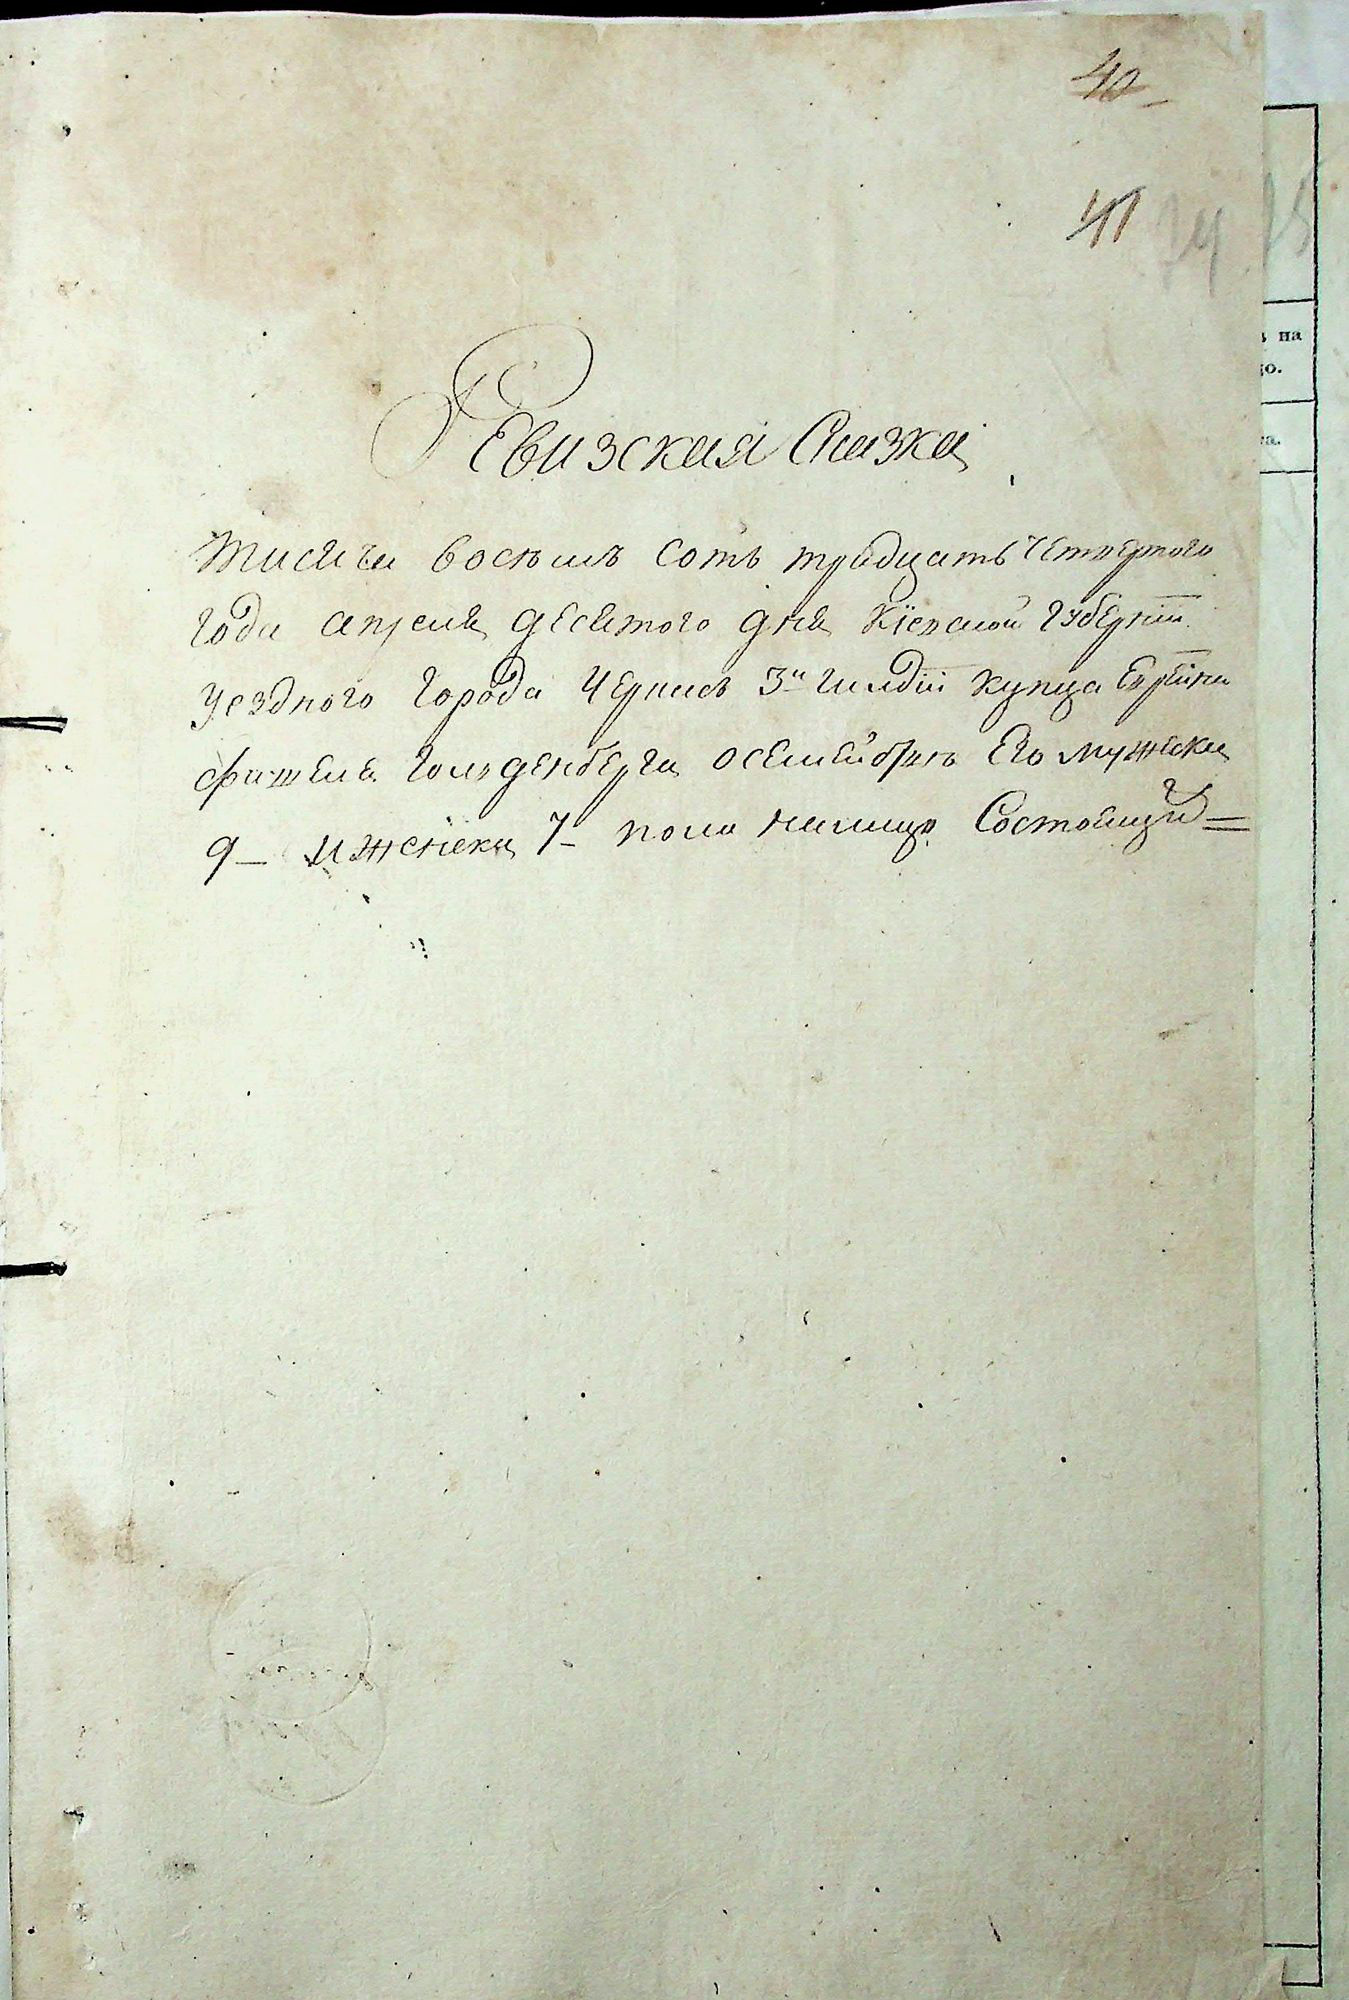 40
41
74 75
ъ на
до.
та.
Ревизская Сказка
тисяча восемъ сотъ тридцать четвертого
года апреля десятого дня Кіевской губерніи
уездного города Черкасъ 3й гилдіи купца Еврейна
Фишеля Гольденберга осемействе Его мужска
9 – и женска 7 – пола налицо Состоящій =